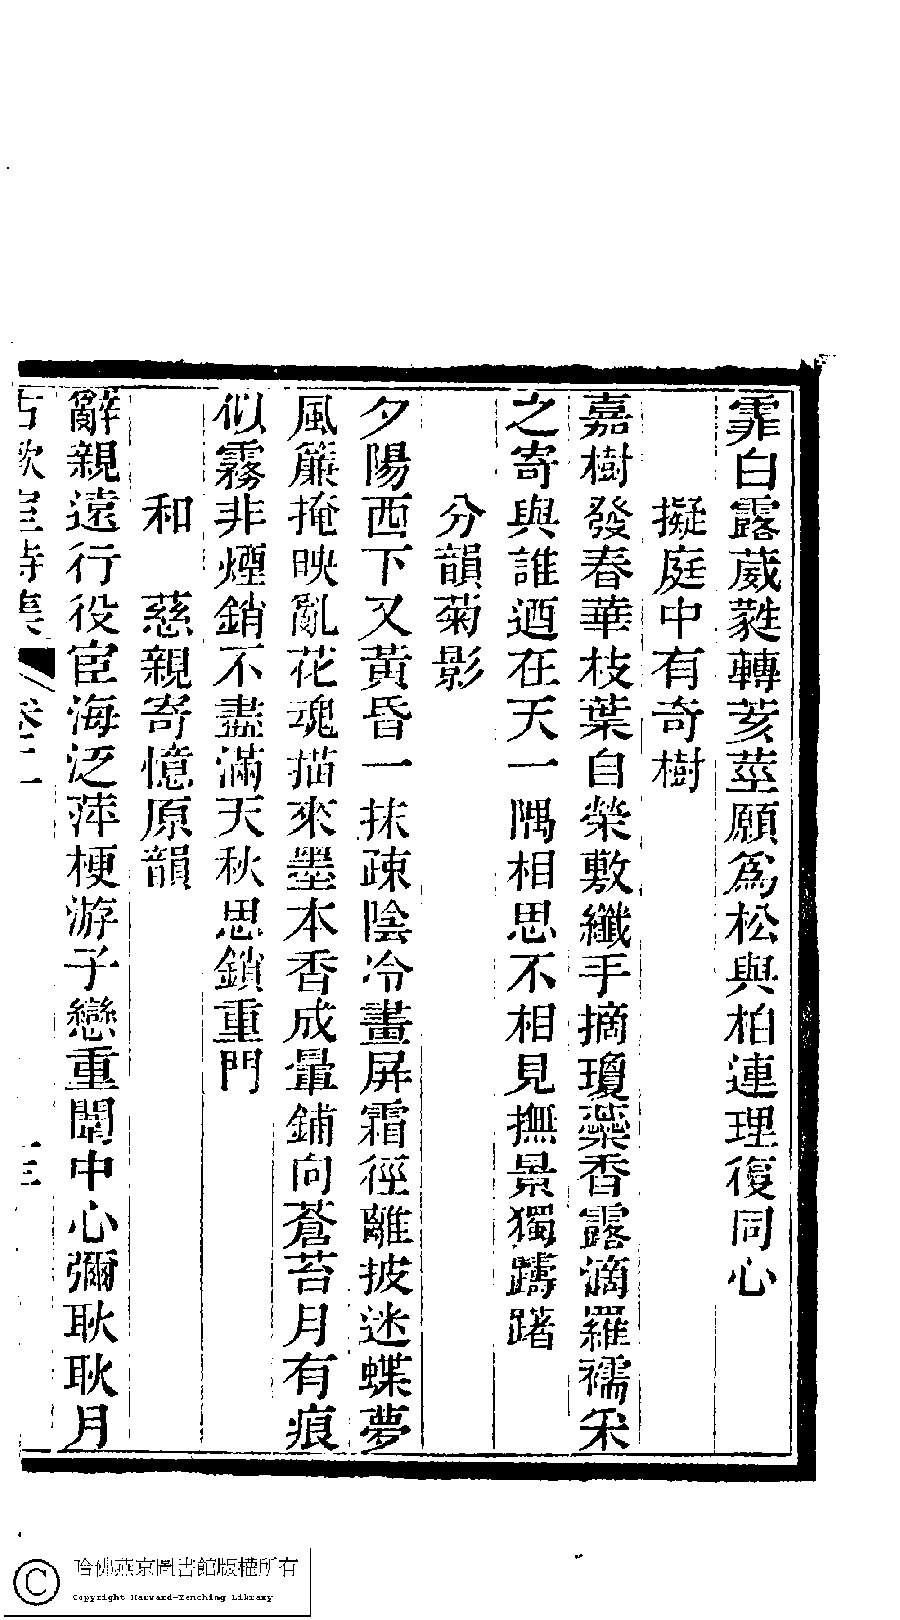 霏白露葳蕤轉荄莖願爲松與柏連理復同心
擬庭中有奇樹
嘉樹發春華枝葉自榮敷纖手摘瓊蘂香露滴羅襦采
之寄與誰迺在天一隅相思不相見撫景獨躊躇
分韻菊影
夕陽西下又黃昏一抹疎陰冷畫屏霜徑離披迷蝶夢
風簾掩映亂花魂描來墨本香成暈鋪向蒼苔月有痕
似霧非煙銷不盡滿天秋思鎖重門
和　慈親寄憶原韻
辭親遠行役宦海泛萍梗游子戀重闈中心彌耿耿月
古歡室詩集 卷二
哈佛燕京圖書館版權所有
Copyright Harvard-Yenching Library